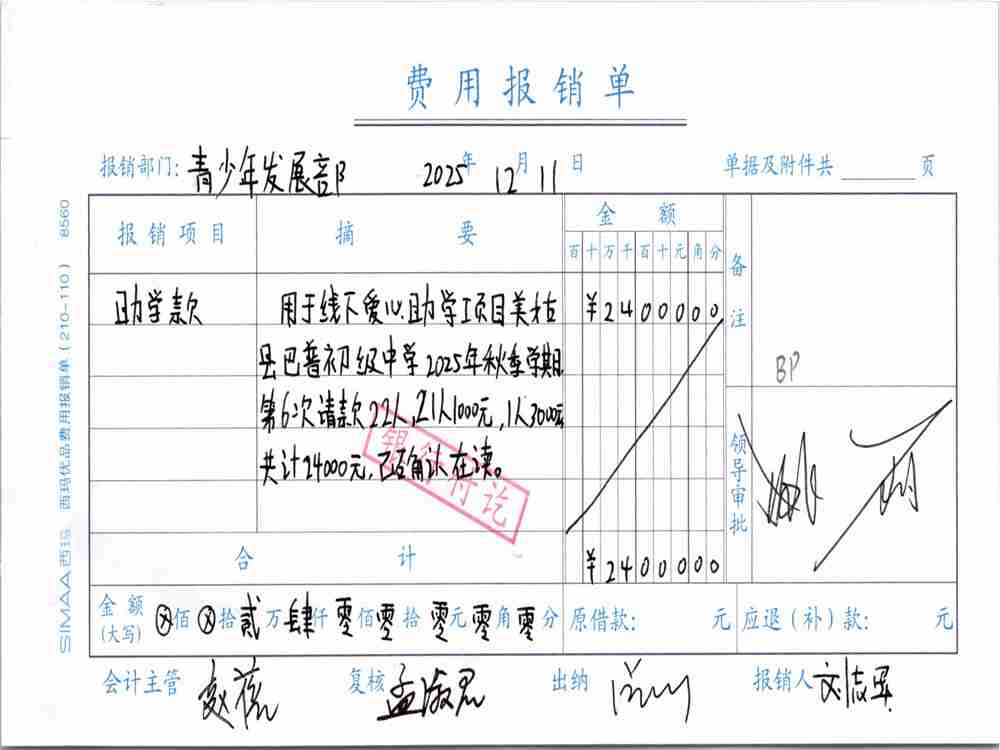 费用报销单
报销部门: 青少年发展部 2025年 12月 11日 单据及附件共 页
报销项目 摘要 金额 备注
百十万千百十元角分
助学款 用于线下爱心助学项目美姑 ¥2400000
县巴普初级中学2025年秋季学期
第6次请款22人,21人1000元,1人3000元
共计24000元,已确认在读。
银行付讫
BP
领导审批
合计 ¥2400000
金额(大写) ⊗佰⊗拾贰万肆仟零佰零拾零元零角零分 原借款: 元 应退(补)款: 元
会计主管 复核 孟淑君 出纳 报销人 刘志军
SIMAA西玛 西玛优品费用报销单(210-110) 8560